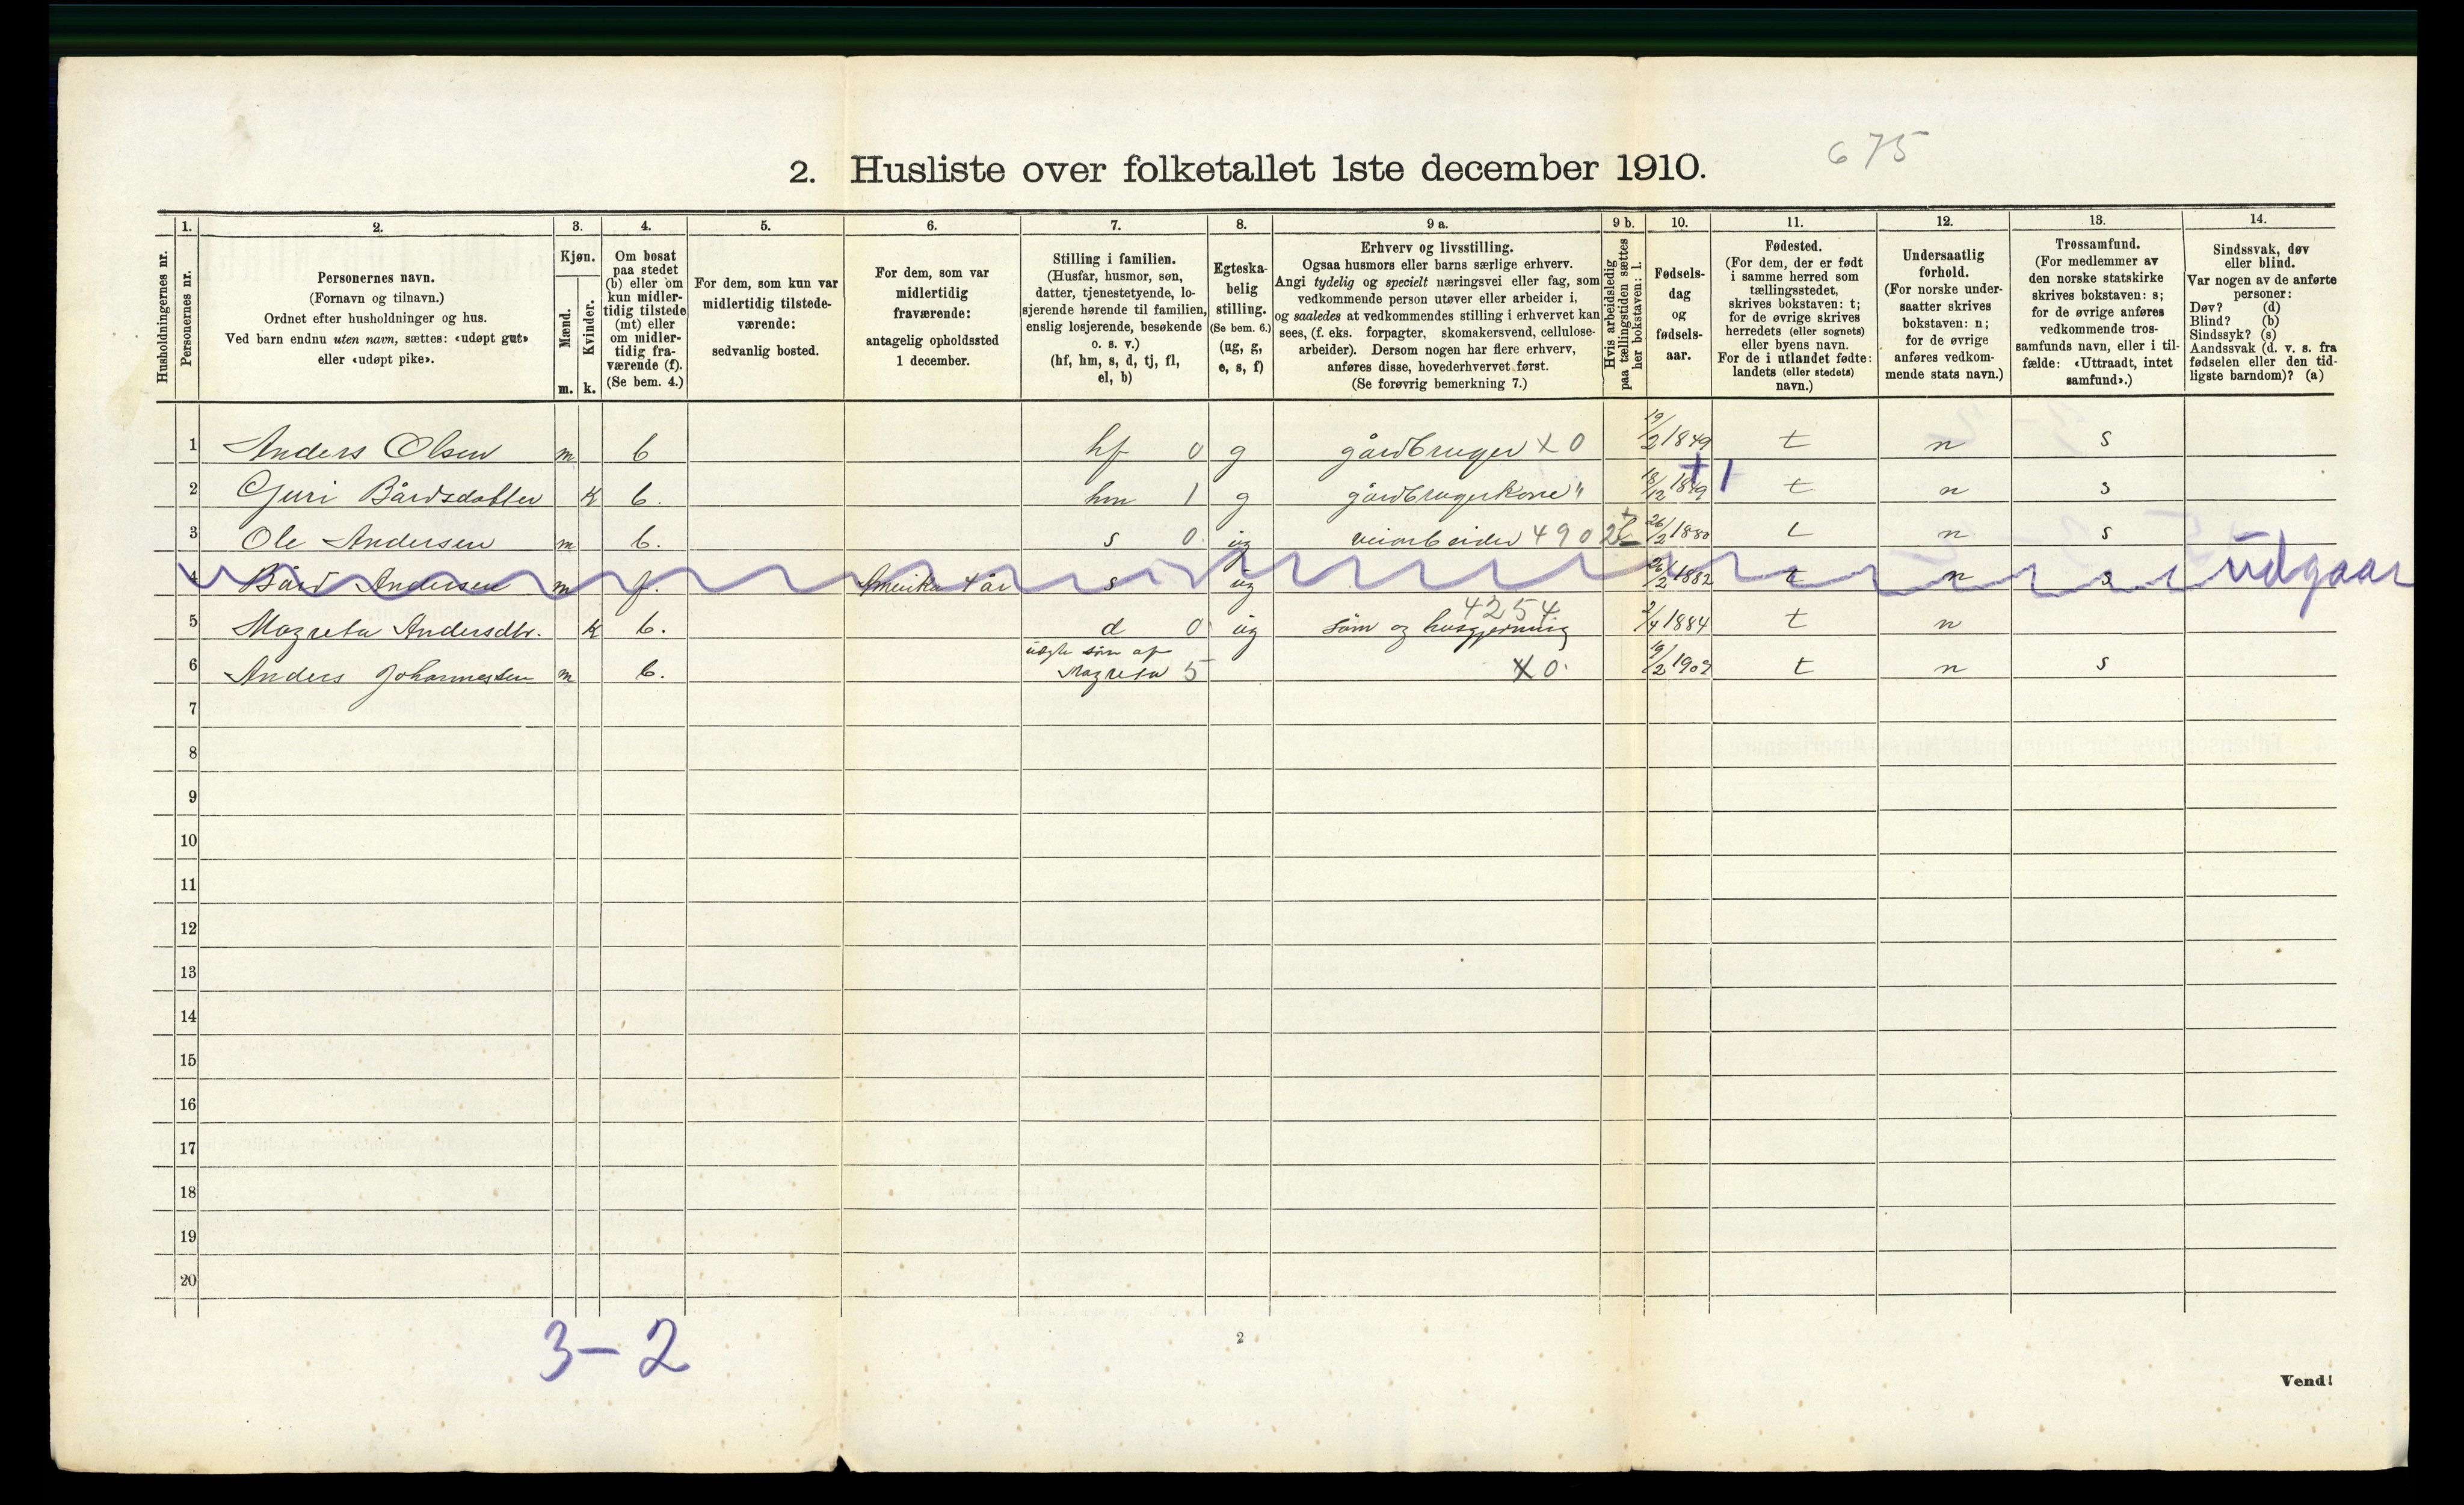 675
2. Husliste over folketallet 1ste december 1910.
1. 2. 3. 4. 5. 6. 7. 8. 9 a. 9 b. 10. 11. 12. 13. 14.
Husholdningernes nr.
Personernes nr.
Personernes navn.
(Fornavn og tilnavn.)
Ordnet efter husholdninger og hus.
Ved barn endnu uten navn, sættes: «udøpt gut»
eller «udøpt pike».
Kjøn.
Mænd.
m.
Kvinder.
k.
Om bosat
paa stedet
(b) eller om
kun midler-
tidig tilstede
(mt) eller
om midler-
tidig fra-
værende (f).
(Se bem. 4.)
For dem, som kun var
midlertidig tilstede-
værende:
sedvanlig bosted.
For dem, som var
midlertidig
fraværende:
antagelig opholdssted
1 december.
Stilling i familien.
(Husfar, husmor, søn,
datter, tjenestetyende, lo-
sjerende hørende til familien,
enslig losjerende, besøkende
o. s. v.)
(hf, hm, s, d, tj, fl,
el, b)
Egteska-
belig
stilling.
(Se bem. 6.)
(ug, g,
e, s, f)
Erhverv og livsstilling.
Ogsaa husmors eller barns særlige erhverv.
Angi tydelig og specielt næringsvei eller fag, som
vedkommende person utøver eller arbeider i,
og saaledes at vedkommendes stilling i erhvervet kan
sees, (f. eks. forpagter, skomakersvend, cellulose-
arbeider). Dersom nogen har flere erhverv,
anføres disse, hovederhvervet først.
(Se forøvrig bemerkning 7.)
Hvis arbeidsledig
paa tællingstiden sættes
her bokstaven: l.
Fødsels-
dag
og
fødsels-
aar.
Fødested.
(For dem, der er født
i samme herred som
tællingsstedet,
skrives bokstaven: t;
for de øvrige skrives
herredets (eller sognets)
eller byens navn.
For de i utlandet fødte:
landets (eller stedets)
navn.)
Undersaatlig
forhold.
(For norske under-
saatter skrives
bokstaven: n;
for de øvrige
anføres vedkom-
mende stats navn.)
Trossamfund.
(For medlemmer av
den norske statskirke
skrives bokstaven: s;
for de øvrige anføres
vedkommende tros-
samfunds navn, eller i til-
fælde: «Uttraadt, intet
samfund».)
Sindssvak, døv
eller blind.
Var nogen av de anførte
personer:
Døv? (d)
Blind? (b)
Sindssyk? (s)
Aandssvak (d. v. s. fra
fødselen eller den tid-
ligste barndom)? (a)
1 Anders Olsen m b hf 0 g gårdbruger X 0 19/2 1849 t n s
2 Guri Bårdsdatter K b. hm 1 g gårdbrugerkone " 18/12 1849 t n s
3 Ole Andersen m b. s 0 ug veiarbeider 4902 26/2 1880 t n s
4 Bård Andersen m f. Amerika 4 år s ug 26/2 1882 t n s udgaar
5 Magreta Andersdtr. K b. d 0 ug søm og husgjerning 4254 2/4 1884 t n
6 Anders Johannessen m b. uægte søn af Magreta 5 X 0. 19/2 1909 t n s
7
8
9
10
11
12
13
14
15
16
17
18
19
20
3 - 2
2
Vend!